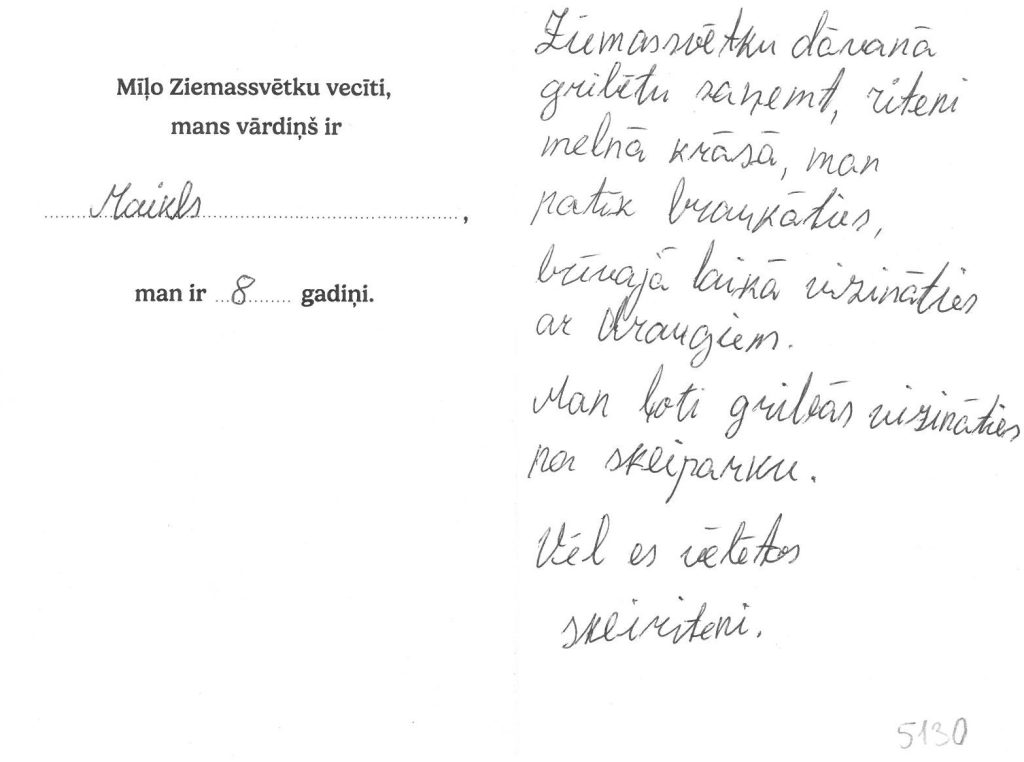 Mīļo Ziemassvētku vecīti,
mans vārdiņš ir
Maikls,
man ir 8 gadiņi.
Ziemassvētku dāvanā
gribētu saņemt, riteni
melnā krāsā, man
patīk braukāties,
brīvajā laikā vizināties
ar draugiem.
Man ļoti gribās vizināties
pa skeiparku.
Vēl es vēlētos
skeiriteni.
5130